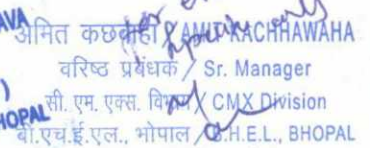 AVA
अमित कछवाहा / AMIT KACHHAWAHA
वरिष्ठ प्रबंधक / Sr. Manager
सी. एम. एक्स. विभाग / CMX Division
HOPAL
बी.एच.ई.एल., भोपाल / B.H.E.L., BHOPAL